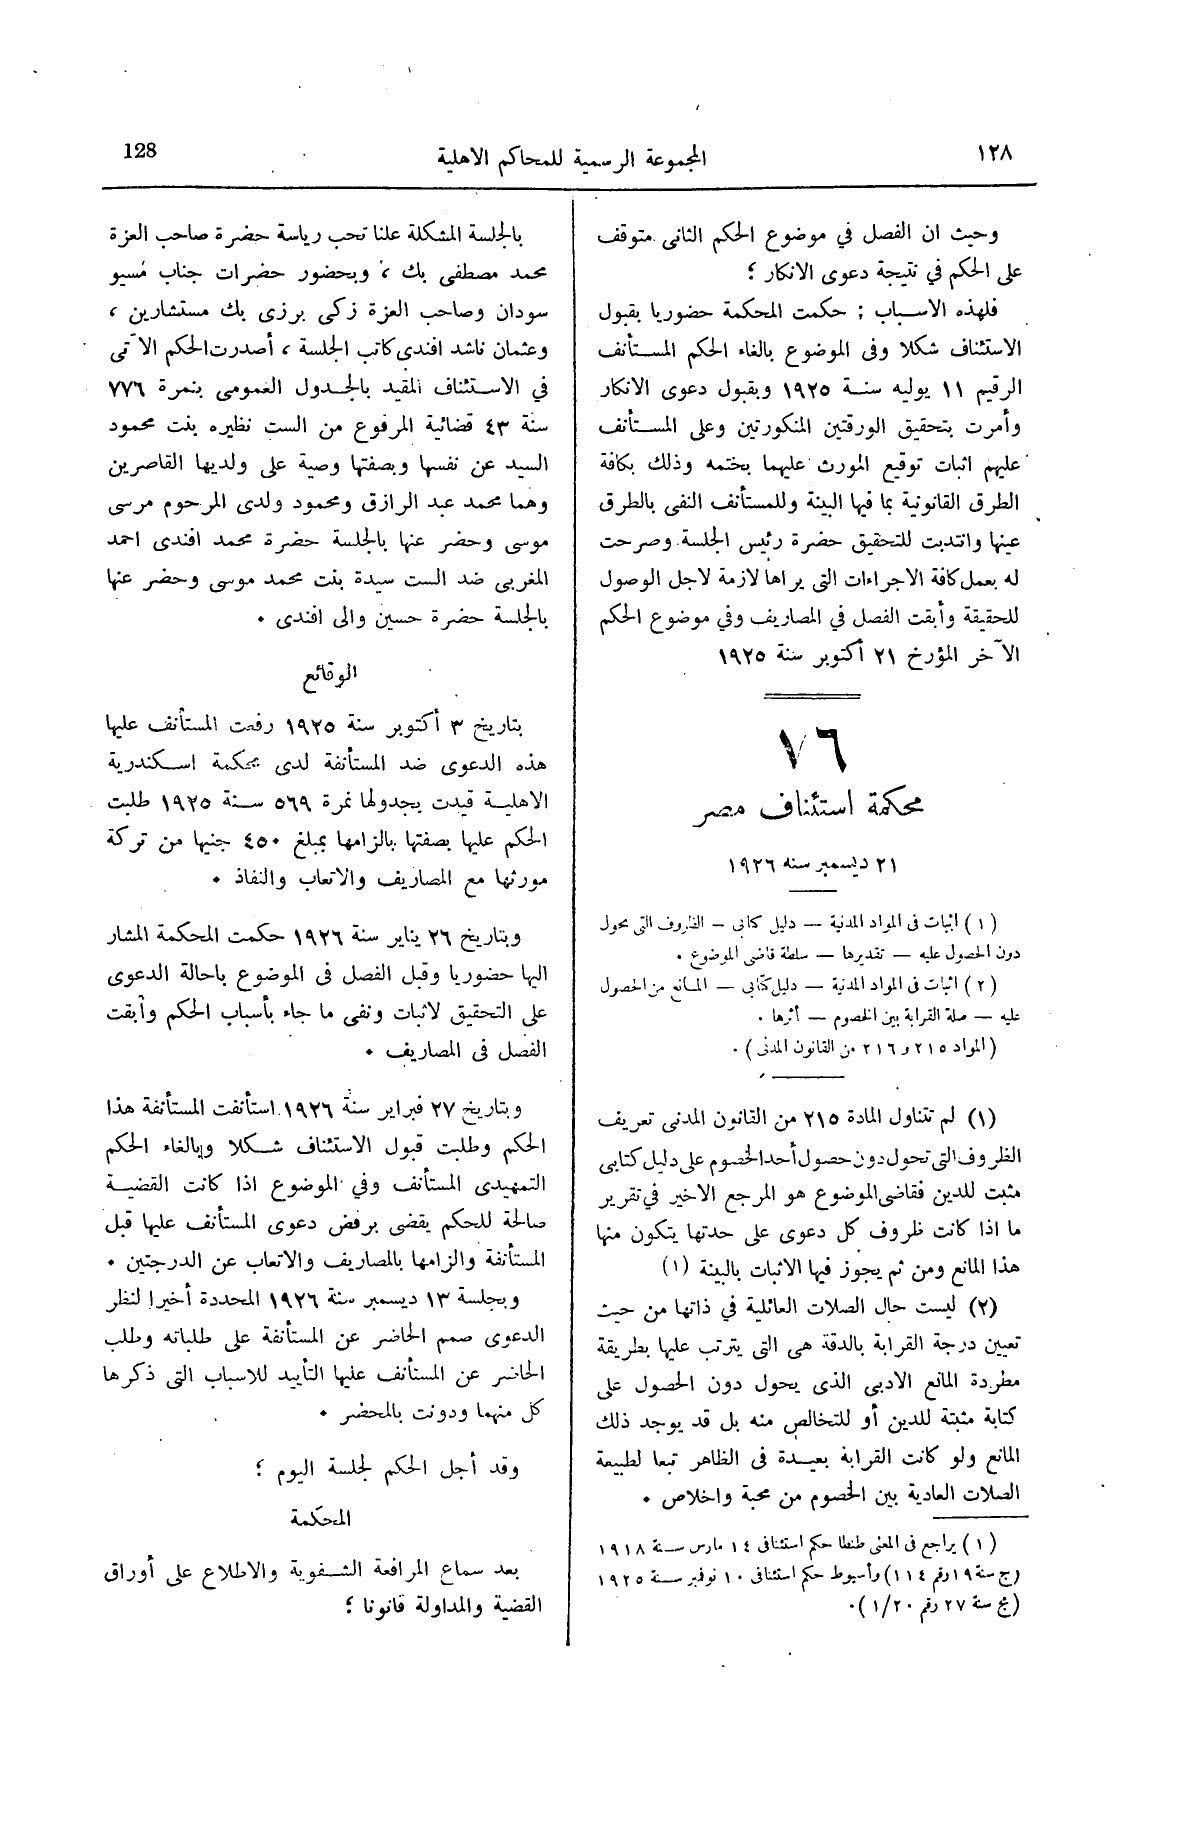 ١٢٨
المجموعة الرسمية للمحاكم الاهلية
128
وحيث ان الفصل في موضوع الحكم الثانى متوقف
على الحكم في نتيجة دعوى الانكار ؛
فلهذه الاسباب ; حكمت المحكمة حضوريا بقبول
الاستئناف شكلا وفى الموضوع بالغاء الحكم المستأنف
الرقيم ١١ يوليه سنة ١٩٢٥ وبقبول دعوى الانكار
وأمرت بتحقيق الورقتين المنكورتين وعلى المستأنف
عليهم اثبات توقيع المورث عليهما بختمه وذلك بكافة
الطرق القانونية بما فيها البينة وللمستأنف النفى بالطرق
عينها وانتدبت للتحقيق حضرة رئيس الجلسة وصرحت
له بعمل كافة الاجراءات التى يراها لازمة لاجل الوصول
للحقيقة وأبقت الفصل في المصاريف وفي موضوع الحكم
الآخر المؤرخ ٢١ أكتوبر سنة ١٩٢٥
٧٦
محكمة استئناف مصر
٢١ ديسمبر سنه ١٩٢٦
(١) اثبات فى المواد المدنية — دليل كتابى — الظروف التى تحول
دون الحصول عليه — تقديرها — سلطة قاضى الموضوع .
(٢) اثبات فى المواد المدنية — دليل كتابى — المانع من الحصول
عليه — صلة القرابة بين الخصوم — أثرها .
(المواد ٢١٥ و ٢١٦ من القانون المدنى) .
(١) لم تتناول المادة ٢١٥ من القانون المدنى تعريف
الظروف التى تحول دون حصول أحد الخصوم على دليل كتابى
مثبت للدين فقاضى الموضوع هو المرجع الاخير في تقرير
ما اذا كانت ظروف كل دعوى على حدتها يتكون منها
هذا المانع ومن ثم يجوز فيها الاثبات بالبينة (١)
(٢) ليست حال الصلات العائلية في ذاتها من حيث
تعيين درجة القرابة بالدقة هى التى يترتب عليها بطريقة
مطردة المانع الادبى الذى يحول دون الحصول على
كتابة مثبتة للدين أو للتخالص منه بل قد يوجد ذلك
المانع ولو كانت القرابة بعيدة فى الظاهر تبعا لطبيعة
الصلات العادية بين الخصوم من محبة واخلاص .
(١) يراجع فى المعنى طنطا حكم استئنافى ١٤ مارس سنة ١٩١٨
(ج سنة ١٩ رقم ١١٤) وأسيوط حكم استئنافى ١٠ نوفمبر سنة ١٩٢٥
(مج سنة ٢٧ رقم ١/٢٠).
بالجلسة المشكلة علنا تحت رياسة حضرة صاحب العزة
محمد مصطفى بك ، وبحضور حضرات جناب مسيو
سودان وصاحب العزة زكى برزى بك مستشارين ،
وعثمان ناشد افندى كاتب الجلسة ، أصدرت الحكم الآتى
في الاستئناف المقيد بالجدول العمومى بنمرة ٧٧٦
سنة ٤٣ قضائية المرفوع من الست نظيره بنت محمود
السيد عن نفسها وبصفتها وصية على ولديها القاصرين
وهما محمد عبد الرازق ومحمود ولدى المرحوم مرسى
موسى وحضر عنها بالجلسة حضرة محمد افندى احمد
المغربى ضد الست سيدة بنت محمد موسى وحضر عنها
بالجلسة حضرة حسين والى افندى .
الوقائع
بتاريخ ٣ أكتوبر سنة ١٩٢٥ رفعت المستأنف عليها
هذه الدعوى ضد المستأنفة لدى محكمة اسكندرية
الاهلية قيدت بجدولها نمرة ٥٦٩ سنة ١٩٢٥ طلبت
الحكم عليها بصفتها بالزامها بمبلغ ٤٥٠ جنيها من تركة
مورثها مع المصاريف والاتعاب والنفاذ .
وبتاريخ ٢٦ يناير سنة ١٩٢٦ حكمت المحكمة المشار
اليها حضوريا وقبل الفصل فى الموضوع باحالة الدعوى
على التحقيق لاثبات ونفى ما جاء بأسباب الحكم وأبقت
الفصل فى المصاريف .
وبتاريخ ٢٧ فبراير سنة ١٩٢٦ استأنفت المستأنفة هذا
الحكم وطلبت قبول الاستئناف شكلا وبالغاء الحكم
التمهيدى المستأنف وفي الموضوع اذا كانت القضية
صالحة للحكم يقضى برفض دعوى المستأنف عليها قبل
المستأنفة والزامها بالمصاريف والاتعاب عن الدرجتين .
وبجلسة ١٣ ديسمبر سنة ١٩٢٦ المحددة أخيرا لنظر
الدعوى صمم الحاضر عن المستأنفة على طلباته وطلب
الحاضر عن المستأنف عليها التأييد للاسباب التى ذكرها
كل منهما ودونت بالمحضر .
وقد أجل الحكم لجلسة اليوم ؛
المحكمة
بعد سماع المرافعة الشفوية والاطلاع على أوراق
القضية والمداولة قانونا ؛